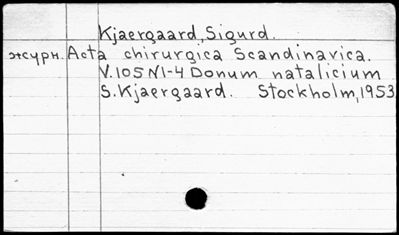 Kjaergaard, Sigurd.
журн. Acta chirurgica Scandinavica.
V.105 N1-4 Donum natalicium
S. Kjaergaard. Stockholm, 1953